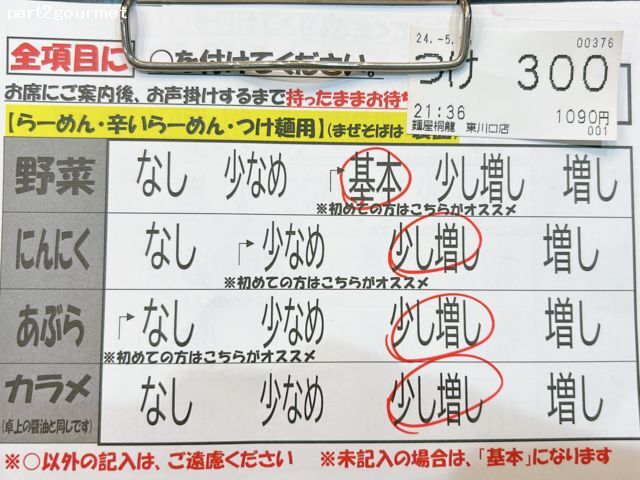 part2gourmet
全項目に ○を付けてください。
お席にご案内後、お声掛けするまで持ったままお待
【らーめん・辛いらーめん・つけ麺用】(まぜそばは
24.-5.
00376
つけ 300
21:36
1090円
麺屋桐龍 東川口店
001
野菜 なし 少なめ 基本 少し増し 増し
※初めての方はこちらがオススメ
にんにく なし 少なめ 少し増し 増し
※初めての方はこちらがオススメ
あぶら なし 少なめ 少し増し 増し
※初めての方はこちらがオススメ
カラメ なし 少なめ 少し増し 増し
(卓上の醤油と同じです)
※○以外の記入は、ご遠慮ください ※未記入の場合は、「基本」になります